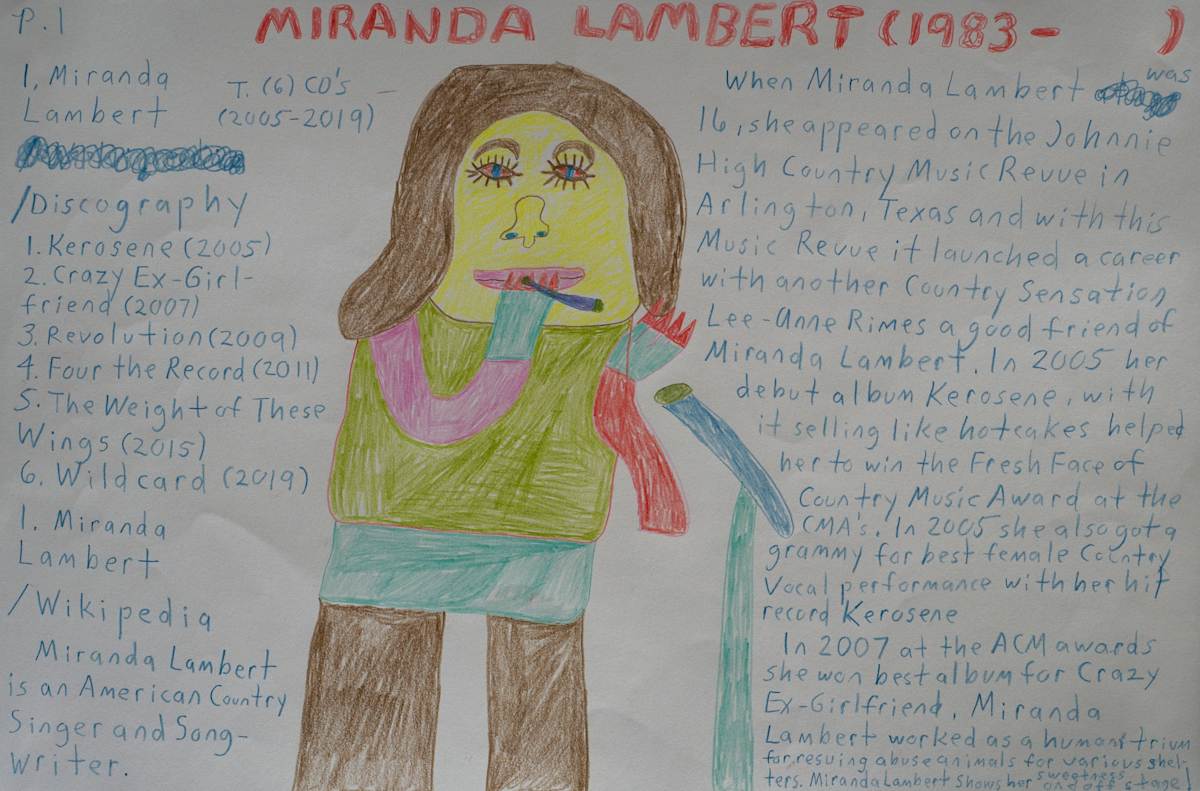 P.1
MIRANDA LAMBERT (1983- )
1. Miranda
Lambert
T. (6) CD's
(2005-2019)
/Discography
1. Kerosene (2005)
2. Crazy Ex-Girl-
friend (2007)
3. Revolution (2009)
4. Four the Record (2011)
5. The Weight of These
Wings (2015)
6. Wildcard (2019)
1. Miranda
Lambert
/Wikipedia
Miranda Lambert
is an American Country
Singer and Song-
writer.
When Miranda Lambert was
16, she appeared on the Johnnie
High Country Music Revue in
Arlington, Texas and with this
Music Revue it launched a career
with another Country Sensation
Lee-Anne Rimes a good friend of
Miranda Lambert. In 2005 her
debut album Kerosene, with
it selling like hotcakes helped
her to win the Fresh Face of
Country Music Award at the
CMA's. In 2005 she also got a
grammy for best female Country
Vocal performance with her hit
record Kerosene
In 2007 at the ACM awards
she won best album for Crazy
Ex-Girlfriend. Miranda
Lambert worked as a humanitrium
for resuing abuse animals for various shel-
ters. Miranda Lambert shows her sweetness on and off stage!